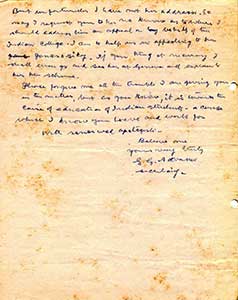 But unfortunately I have not his address. So
may I request you to let me know as to where I
should address him an appeal on behalf of the
Indian College. I am to help us as appealing to his
generosity. If your thing at necessary I
shall even go and see him and explain to
him the scheme.
Please forgive me all the trouble I am giving you
in the matter, but as you know, it is towards the
cause of education of Indian students - a cause
which I know you love and work for
With renewed apologies.
Believe me
yours very truly
G. G. Advani